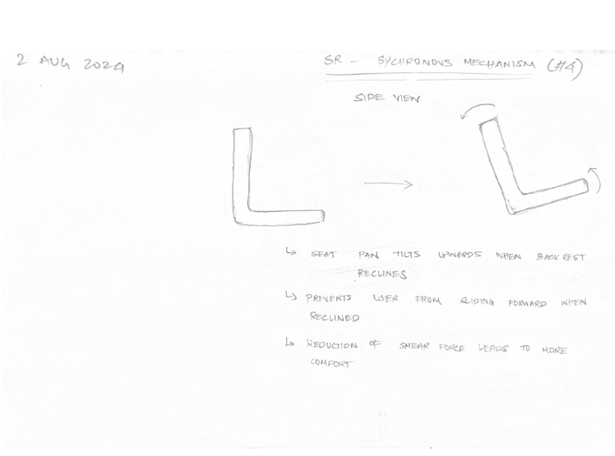 2 AUG 2024
SR - SYCHRONOUS MECHANISM (#4)
SIDE VIEW
↳ SEAT PAN TILTS UPWARDS WHEN BACKREST
RECLINES
↳ PREVENTS USER FROM SLIDING FORWARD WHEN
RECLINED
↳ REDUCTION OF SHEAR FORCE LEADS TO MORE
COMFORT